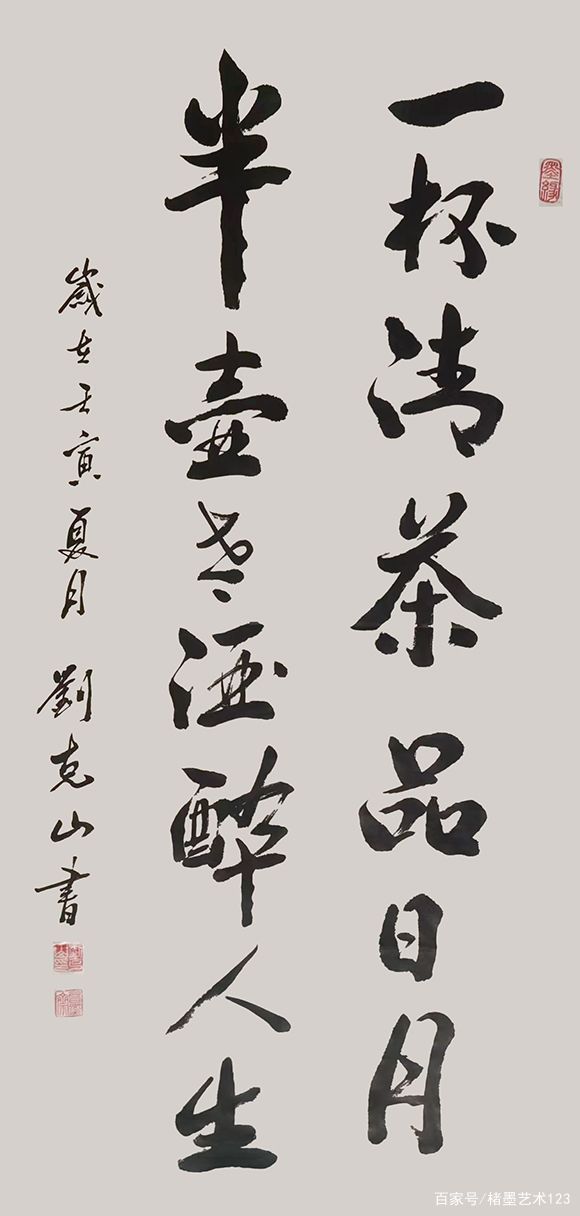 一杯清茶品日月
半壺老酒醉人生
歲在壬寅夏月 劉克山書
墨緣
百家号/楮墨艺术123